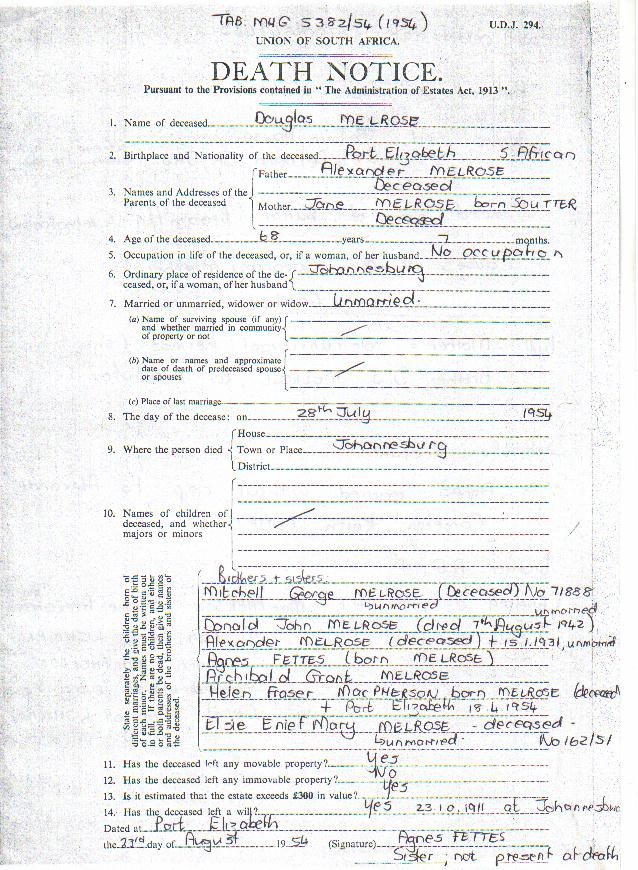 TAB. MHG 5382/54 (1954)
U.D.J. 294.
UNION OF SOUTH AFRICA.
DEATH NOTICE.
Pursuant to the Provisions contained in "The Administration of Estates Act, 1913".
1. Name of deceased Douglas MELROSE
2. Birthplace and Nationality of the deceased Port Elizabeth S. African
3. Names and Addresses of the Parents of the deceased
Father Alexander MELROSE
Deceased
Mother Jane MELROSE born SOUTTER
Deceased
4. Age of the deceased 68 years 7 months.
5. Occupation in life of the deceased, or, if a woman, of her husband No occupation
6. Ordinary place of residence of the de- Johannesburg
ceased, or, if a woman, of her husband
7. Married or unmarried, widower or widow Unmarried.
(a) Name of surviving spouse (if any)
and whether married in community
of property or not
(b) Name or names and approximate
date of death of predeceased spouse
or spouses
(c) Place of last marriage
8. The day of the decease: on 28th July 1954
9. Where the person died
House
Town or Place Johannesburg
District
10. Names of children of
deceased, and whether
majors or minors
State separately the children born of
different marriages, and give the date of birth
of each minor. Names must be written out
in full. If there are no children, and either
or both parents be dead, then give the names
and addresses of the brothers and sisters of
the deceased.
Brothers + sisters
Mitchell George MELROSE (Deceased) No 71888
unmarried
unmarried
Donald John MELROSE (died 7th August 1942)
Alexander MELROSE (deceased) + 15.1.1931, unmarried
Agnes FETTES (born MELROSE)
Archibald Grant MELROSE
Helen Fraser MacPHERSON born MELROSE (deceased
+ Port Elizabeth 18.4.1954
Elsie Enief Mary MELROSE - deceased -
unmarried No 162/51
11. Has the deceased left any movable property? Yes
12. Has the deceased left any immovable property? No
13. Is it estimated that the estate exceeds £300 in value? Yes
14. Has the deceased left a will? Yes 23.10.1911 at Johannesburg
Dated at Port Elizabeth
the 23rd day of August 1954 (Signature) Agnes FETTES
Sister; not present at death